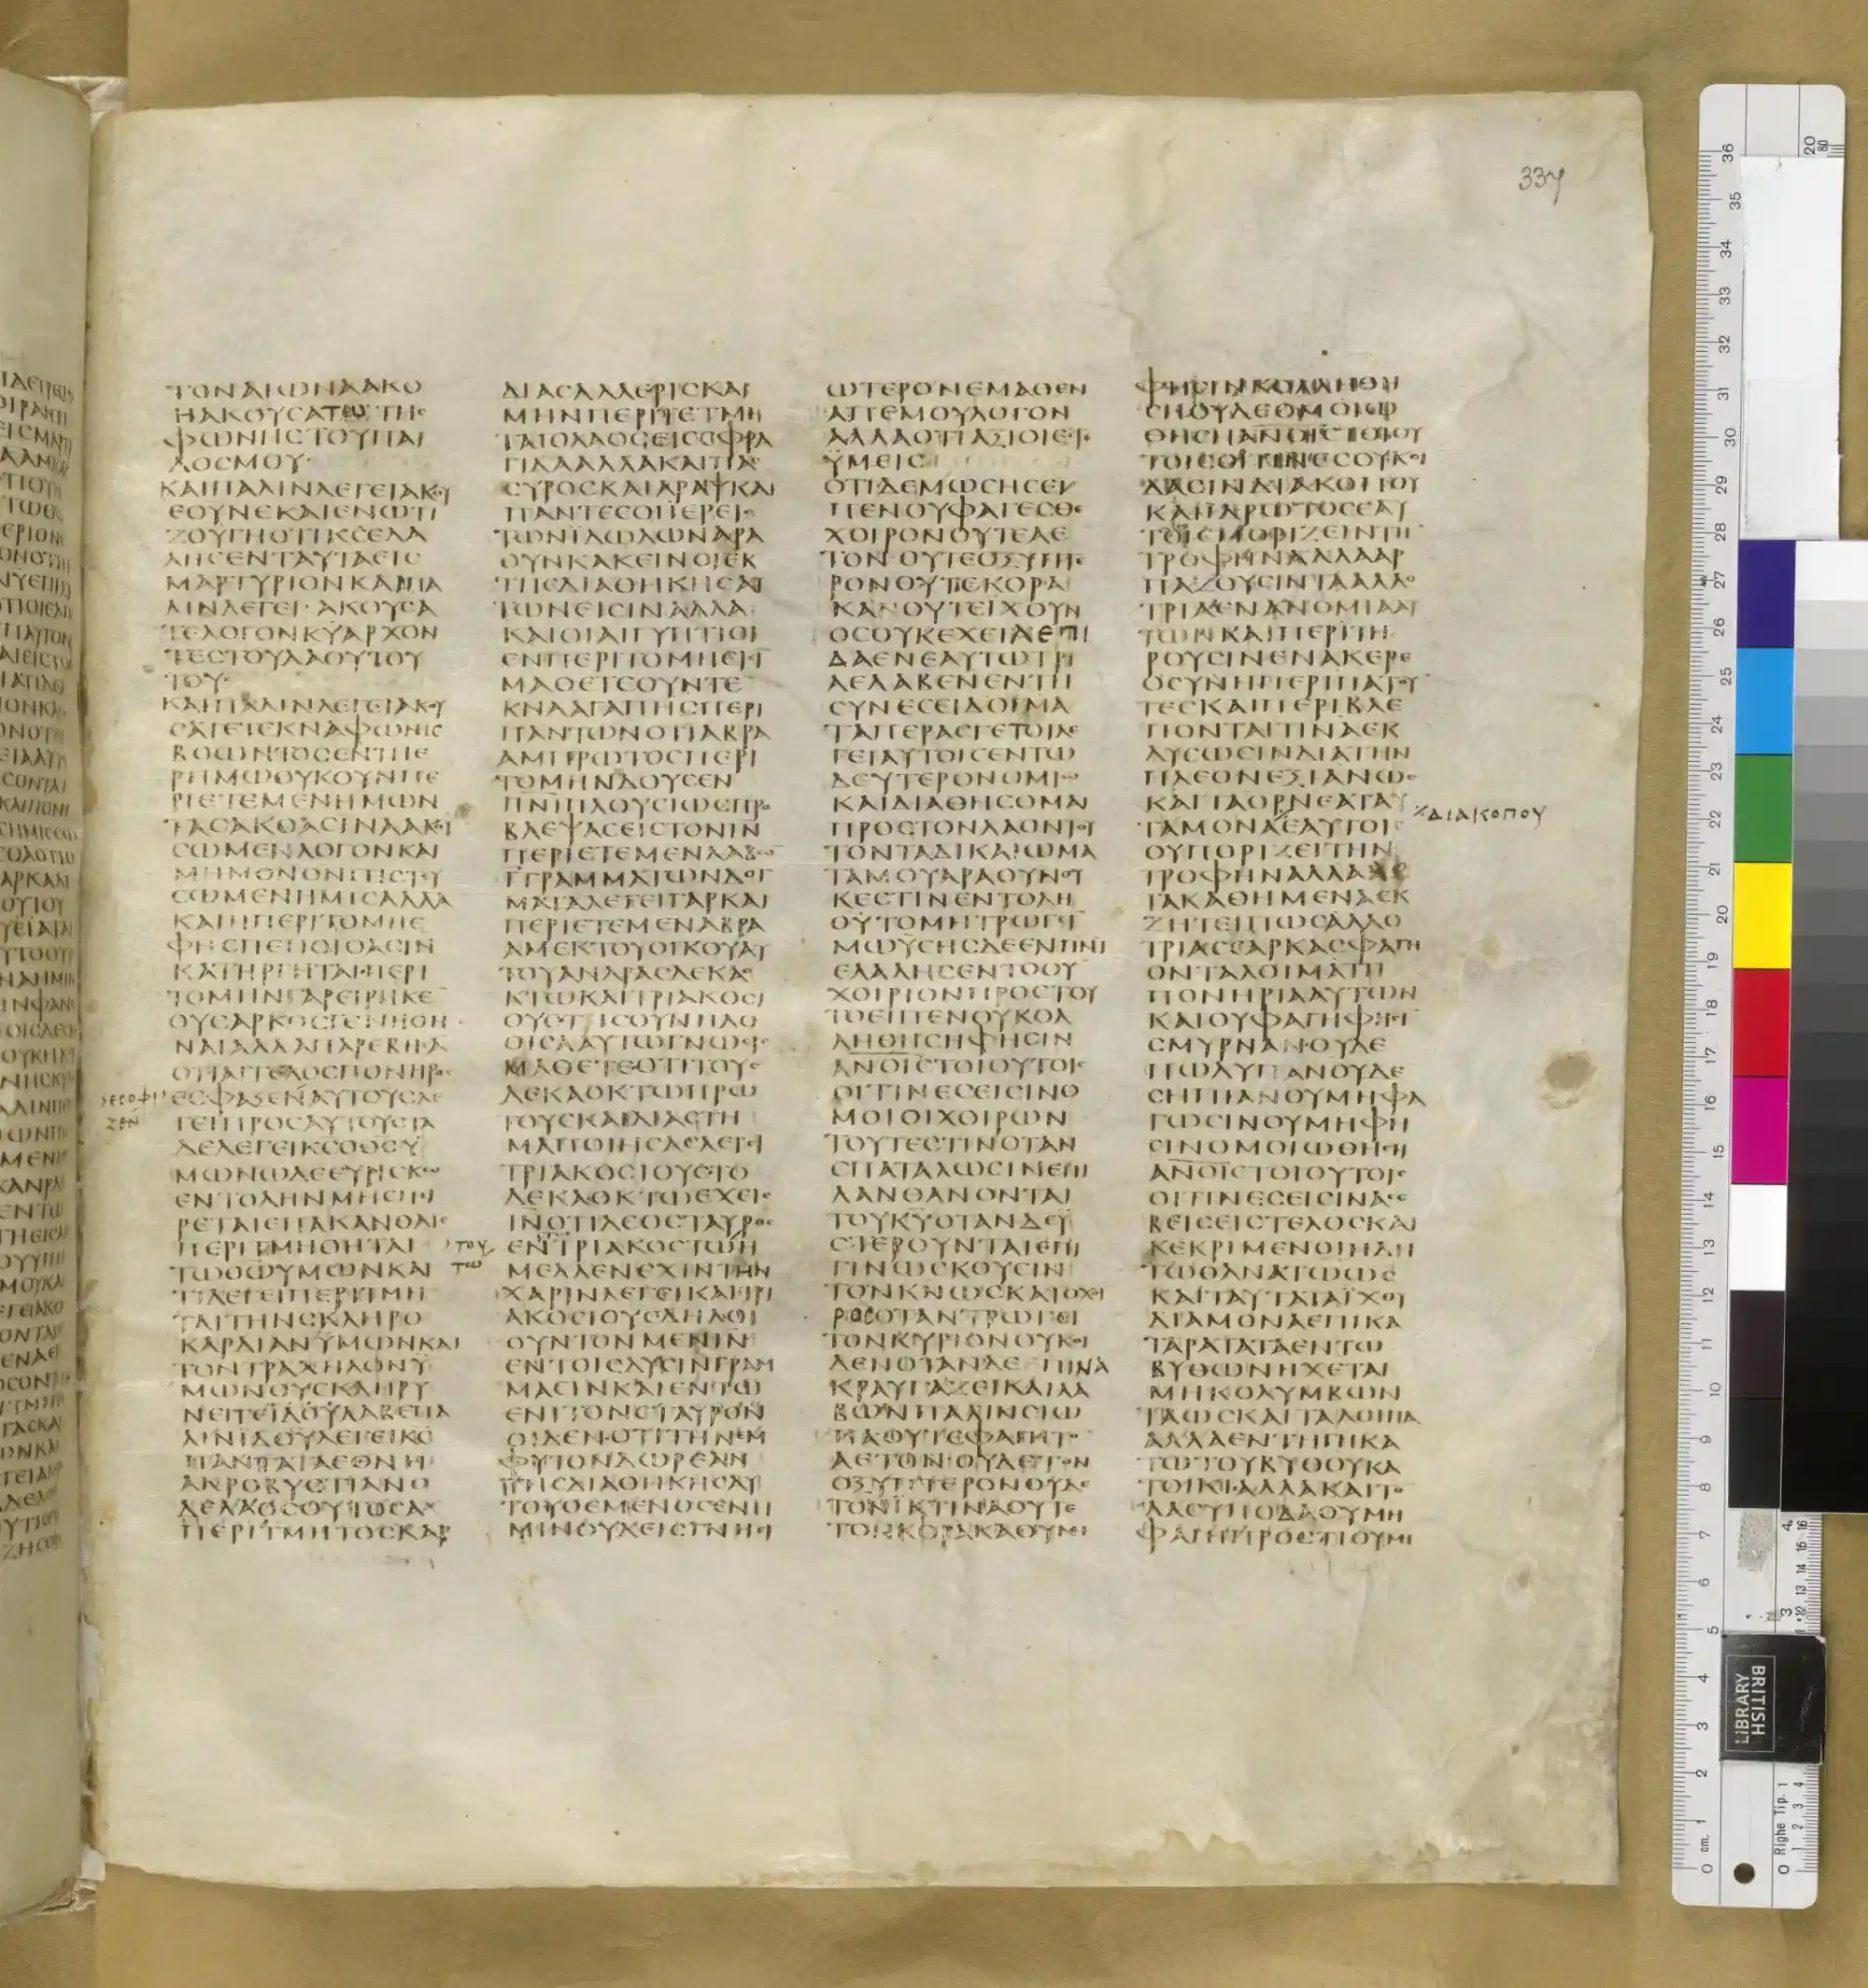 ΤΟΝΑΙΩΝΑΑΚΟ
ΗΑΚΟΥϹΑΤΩΤΗϹ
ΦΩΝΗϹΤΟΥΠΑΙ
ΔΟϹΜΟΥ
ΚΑΙΠΑΛΙΝΛΕΓΕΙΑΚΟΥ
ΕΟΥΝΕΚΑΙΕΝΩΤΙ
ΖΟΥΓΗΟΤΙΚϹΕΛΑ
ΛΗϹΕΝΤΑΥΤΑΕΙϹ
ΜΑΡΤΥΡΙΟΝΚΑΙΠΑ
ΛΙΝΛΕΓΕΙ·ΑΚΟΥϹΑ
ΤΕΛΟΓΟΝΚΥΑΡΧΟΝ
ΤΕϹΤΟΥΛΑΟΥΤΟΥ
ΤΟΥ·
ΚΑΙΠΑΛΙΝΛΕΓΕΙΑΚΟΥ
ϹΑΤΕΤΕΚΝΑΦΩΝΗϹ
ΒΟΩΝΤΟϹΕΝΤΗΕ
ΡΗΜΩΟΥΚΟΥΝΠΕ
ΡΙΕΤΕΜΕΝΗΜΩΝ
ΤΑϹΑΚΟΑϹΙΝΑΑΚΟΥ
ϹΩΜΕΝΛΟΓΟΝΚΑΙ
ΜΗΜΟΝΟΝΠΙϹΤΕΥ
ϹΩΜΕΝΗΜΙϹΑΛΛΑ
ΚΑΙΗΠΕΡΙΤΟΜΗΕ
ΦΗϹΠΕΠΟΙΘΑϹΙΝ
ΚΑΤΗΡΓΗΤΑΙΠΕΡΙ
ΤΟΜΗΝΓΑΡΕΙΡΗΚΕ
ΟΥϹΑΡΚΟϹΓΕΝΗΘΗ
ΝΑΙΑΛΛΑΠΑΡΕΒΗϹΑ
ΟΤΙΑΓΓΕΛΟϹΠΟΝΗΡΟϹ
ΕϹΦΑΞΕΝΑΥΤΟΥϹΛΕ
ΓΕΙΠΡΟϹΑΥΤΟΥϹΤΑ
ΔΕΛΕΓΕΙΚϹΟΘϹΥ
ΜΩΝΩΔΕΕΥΡΗϹΚΩ
ΕΝΤΟΛΗΝΜΗϹΠΙ
ΡΕΤΑΙΕΠΑΚΑΝΘΑΙϹ
ΠΕΡΙΤΜΗΘΗΤΑΙ
ΤΩΘΩΥΜΩΝΚΑΙ
ΤΙΛΕΓΕΙΠΕΡΙΤΜΗ
ΤΑΙΤΗΝϹΚΛΗΡΟ
ΚΑΡΔΙΑΝΥΜΩΝΚΑΙ
ΤΟΝΤΡΑΧΗΛΟΝΥ
ΜΩΝΟΥϹΚΛΗΡΥ
ΝΕΙΤΕΪΔΟΥΛΑΒΕΠΑ
ΛΙΝΪΔΟΥΛΕΓΕΙΚϹ
ΠΑΝΤΑΤΑΕΘΝΗ
ΑΚΡΟΒΥϹΤΙΑΝΟ
ΔΕΛΑΟϹΟΥΤΟϹΑΚ
ΠΕΡΙΤΜΗΤΟϹΚΑΡ
ΔΙΑϹΑΛΛΕΡΙϹΚΑΙ
ΜΗΝΠΕΡΙΤΕΤΜΗ
ΤΑΙΟΛΑΟϹΕΙϹϹΦΡΑ
ΓΙΔΑΑΛΛΑΚΑΙΠΑϹ
ϹΥΡΟϹΚΑΙΑΡΑΨΚΑΙ
ΠΑΝΤΕϹΟΙΕΡΕΙϹ
ΤΩΝΪΔΩΛΩΝΑΡΑ
ΟΥΝΚΑΚΕΙΝΟΙΕΚ
ΤΗϹΔΙΑΘΗΚΗϹΑΥ
ΤΩΝΕΙϹΙΝΑΛΛΑ
ΚΑΙΟΙΑΙΓΥΠΤΙΟΙ
ΕΝΠΕΡΙΤΟΜΗΕΙϹΙ
ΜΑΘΕΤΕΟΥΝΤΕ
ΚΝΑΑΓΑΠΗϹΠΕΡΙ
ΠΑΝΤΩΝΟΤΙΑΒΡΑ
ΑΜΠΡΩΤΟϹΠΕΡΙ
ΤΟΜΗΝΔΟΥϹΕΝ
ΠΝΙΠΛΟΥϹΙΩϹΠΡΟ
ΒΛΕΨΑϹΕΙϹΤΟΝΙΝ
ΠΕΡΙΕΤΕΜΕΝΛΑΒΩ
ΓΓΡΑΜΜΑΤΩΝΔΟΓ
ΜΑΤΑΛΕΓΕΙΓΑΡΚΑΙ
ΠΕΡΙΕΤΕΜΕΝΑΒΡΑ
ΑΜΕΚΤΟΥΟΙΚΟΥΑΥ
ΤΟΥΑΝΔΡΑϹΔΕΚΑ
ΚΤΩΚΑΙΤΡΙΑΚΟϹΙ
ΟΥϹΤΙϹΟΥΝΗΔΟ
ΘΙϹΑΑΥΤΩΓΝΩϹΙϹ
ΜΑΘΕΤΕΟΤΙΤΟΥϹ
ΔΕΚΑΟΚΤΩΠΡΩ
ΤΟΥϹΚΑΙΔΙΑϹΤΗ
ΜΑΠΟΙΗϹΑϹΛΕΓΕΙ
ΤΡΙΑΚΟϹΙΟΥϹΤΟ
ΔΕΚΑΟΚΤΩΕΧΕΙϹ
ΙΝΟΤΙΔΕΟϹΤΑΥΡΟϹ
ΕΝΤΡΙΑΚΟϹΤΩΗ
ΜΕΛΛΕΝΕΧΙΝΤΗΝ
ΧΑΡΙΝΛΕΓΕΙΚΑΙΤΡΙ
ΑΚΟϹΙΟΥϹΔΗΛΟΙ
ΟΥΝΤΟΝΜΕΝΙΝ
ΕΝΤΟΙϹΔΥϹΙΝΓΡΑΜ
ΜΑϹΙΝΚΑΙΕΝΤΩ
ΕΝΙΤΟΝϹΤΑΥΡΟΝ
ΟΙΔΕΝ·ΟΤΙΤΗΝΕΜ
ΦΥΤΟΝΔΩΡΕΑΝ
ΤΗϹΔΙΑΘΗΚΗϹΑΥ
ΤΟΥΘΕΜΕΝΟϹΕΝΗ
ΜΙΝΟΥΧΕΙϹΓΝΗϹΙ
ΩΤΕΡΟΝΕΜΑΘΕΝ
ΑΠΕΜΟΥΛΟΓΟΝ
ΑΛΛΑΟΤΙΑΞΙΟΙΕϹΤΕ
ΫΜΕΙϹ
ΟΤΙΔΕΜΩϹΗϹΕΙ
ΠΕΝΟΥΦΑΓΕϹΘΕ
ΧΟΙΡΟΝΟΥΤΕΑΕ
ΤΟΝ·ΟΥΤΕΟΞΥΠΤΕ
ΡΟΝΟΥΤΕΚΟΡΑ
ΚΑΝ·ΟΥΤΕΪΧΘΥΝ
ΟϹΟΥΚΕΧΕΙΛΕΠΙ
ΔΑΕΝΕΑΥΤΩΤΡΙ
ΑΕΛΑΒΕΝΕΝΤΗ
ϹΥΝΕϹΕΙΔΟΓΜΑ
ΤΑΠΕΡΑϹΓΕΤΟΙΛΕ
ΓΕΙΑΥΤΟΙϹΕΝΤΩ
ΔΕΥΤΕΡΟΝΟΜΙΩ
ΚΑΙΔΙΑΘΗϹΟΜΑΙ
ΠΡΟϹΤΟΝΛΑΟΝΤΟΥ
ΤΟΝΤΑΔΙΚΑΙΩΜΑ
ΤΑΜΟΥΑΡΑΟΥΝΟΥ
ΚΕϹΤΙΝΕΝΤΟΛΗ
ΘΥΤΟΜΗΤΡΩΓΙ
ΜΩΫϹΗϹΔΕΕΝΠΝΙ
ΕΛΑΛΗϹΕΝΤΟΟΥ
ΧΟΙΡΙΟΝΠΡΟϹΤΟΥ
ΤΟΕΙΠΕΝΟΥΚΟΛ
ΛΗΘΗϹΗΦΗϹΙΝ
ΑΝΟΙϹΤΟΙΟΥΤΟΙϹ
ΟΙΤΙΝΕϹΕΙϹΙΝΟ
ΜΟΙΟΙΧΟΙΡΩΝ
ΤΟΥΤΕϹΤΙΝΟΤΑΝ
ϹΠΑΤΑΛΩϹΙΝΕΠΙ
ΛΑΝΘΑΝΟΝΤΑΙ
ΤΟΥΚΥΟΤΑΝΔΕΫ
ϹΤΕΡΟΥΝΤΑΙΕΠΙ
ΓΙΝΩϹΚΟΥϹΙΝ
ΤΟΝΚΝΩϹΚΑΙΟΧΟΙ
ΡΟϹΟΤΑΝΤΡΩΓΕΙ
ΤΟΝΚΥΡΙΟΝΟΥΚΟΙ
ΔΕΝΟΤΑΝΔΕΠΙΝΑ
ΚΡΑΥΓΑΖΕΙΚΑΙΛΑ
ΒΩΝΠΑΛΙΝϹΙΩ
ΠΑΟΥΤΕΦΑΓΗΤΟ
ΑΕΤΟΝ·ΟΥΔΕΤΟΝ
ΟΞΥΠΤΕΡΟΝΟΥΔΕ
ΤΟΝΪΚΤΙΝΑΟΥΤΕ
ΤΟΝΚΟΡΑΚΑΟΥΜΗ
ΦΗϹΙΝΚΟΛΛΗΘΗ
ϹΗΟΥΔΕΟΜΟΙΩ
ΘΗϹΗΑΝΟΙϹΤΟΙΟΥ
ΤΟΙϹΟΙΤΙΝΕϹΟΥΚΟΙ
ΔΑϹΙΝΔΙΑΚΟΠΟΥ
ΚΑΙΙΔΡΩΤΟϹΕΑΥ
ΤΟΙϹΠΟΡΙΖΕΙΝΤΗ
ΤΡΟΦΗΝΑΛΛΑΑΡ
ΠΑΖΟΥϹΙΝΤΑΑΛΛΟ
ΤΡΙΑΕΝΑΝΟΜΙΑΑΥ
ΤΩΝΚΑΙΠΕΡΙΤΗ
ΡΟΥϹΙΝΕΝΑΚΕΡΕ
ΟϹΥΝΗΠΕΡΙΠΑΤΟΥ
ΤΕϹΚΑΙΠΕΡΙΒΛΕ
ΠΟΝΤΑΙΤΙΝΑΕΚ
ΔΥϹΩϹΙΝΔΙΑΤΗΝ
ΠΛΕΟΝΕΞΙΑΝΩϹ
ΚΑΙΤΑΟΡΝΕΑΤΑΥ
ΔΙΑΚΟΠΟΥ
ΤΑΜΟΝΑΕΑΥΤΟΙϹ
ΟΥΠΟΡΙΖΕΙΤΗΝ
ΤΡΟΦΗΝΑΛΛΑ
ΓΑΚΑΘΗΜΕΝΑΕΚ
ΖΗΤΕΙΠΩϹΑΛΛΟ
ΤΡΙΑϹϹΑΡΚΑϹΦΑΓΗ
ΟΝΤΑΛΟΙΜΑΤΗ
ΠΟΝΗΡΙΑΑΥΤΩΝ
ΚΑΙΟΥΦΑΓΗΦΗϹΙ
ϹΜΥΡΝΑΝ·ΟΥΔΕ
ΠΩΛΥΠΑΝΟΥΔΕ
ϹΗΠΙΑΝΟΥΜΗΦΑ
ΓΩϹΙΝΟΥΜΗΦΗ
ϹΙΝΟΜΟΙΩΘΗϹΗ
ΑΝΟΙϹΤΟΙΟΥΤΟΙϹ
ΟΙΤΙΝΕϹΕΙϹΙΝΑϹΕ
ΒΕΙϹΕΙϹΤΕΛΟϹΚΑΙ
ΚΕΚΡΙΜΕΝΟΙΗΔΗ
ΤΩΘΑΝΑΤΩΩϹ
ΚΑΙΤΑΥΤΑΤΑΪΧΘΥ
ΔΙΑΜΟΝΑΕΠΙΚΑ
ΤΑΡΑΤΑΤΑΕΝΤΩ
ΒΥΘΩΝΗΧΕΤΑΙ
ΜΗΚΟΛΥΜΒΩΝ
ΤΑΩϹΚΑΙΤΑΛΟΙΠΑ
ΑΛΛΑΕΝΤΗΓΗΚΑ
ΤΩΤΟΥΒΥΘΟΥΚΑ
ΤΟΙΚΙ·ΑΛΛΑΚΑΙΤΟ
ΔΑϹΥΠΟΔΑΟΥΜΗ
ΦΑΓΗΠΡΟϹΤΙΟΥΜΗ